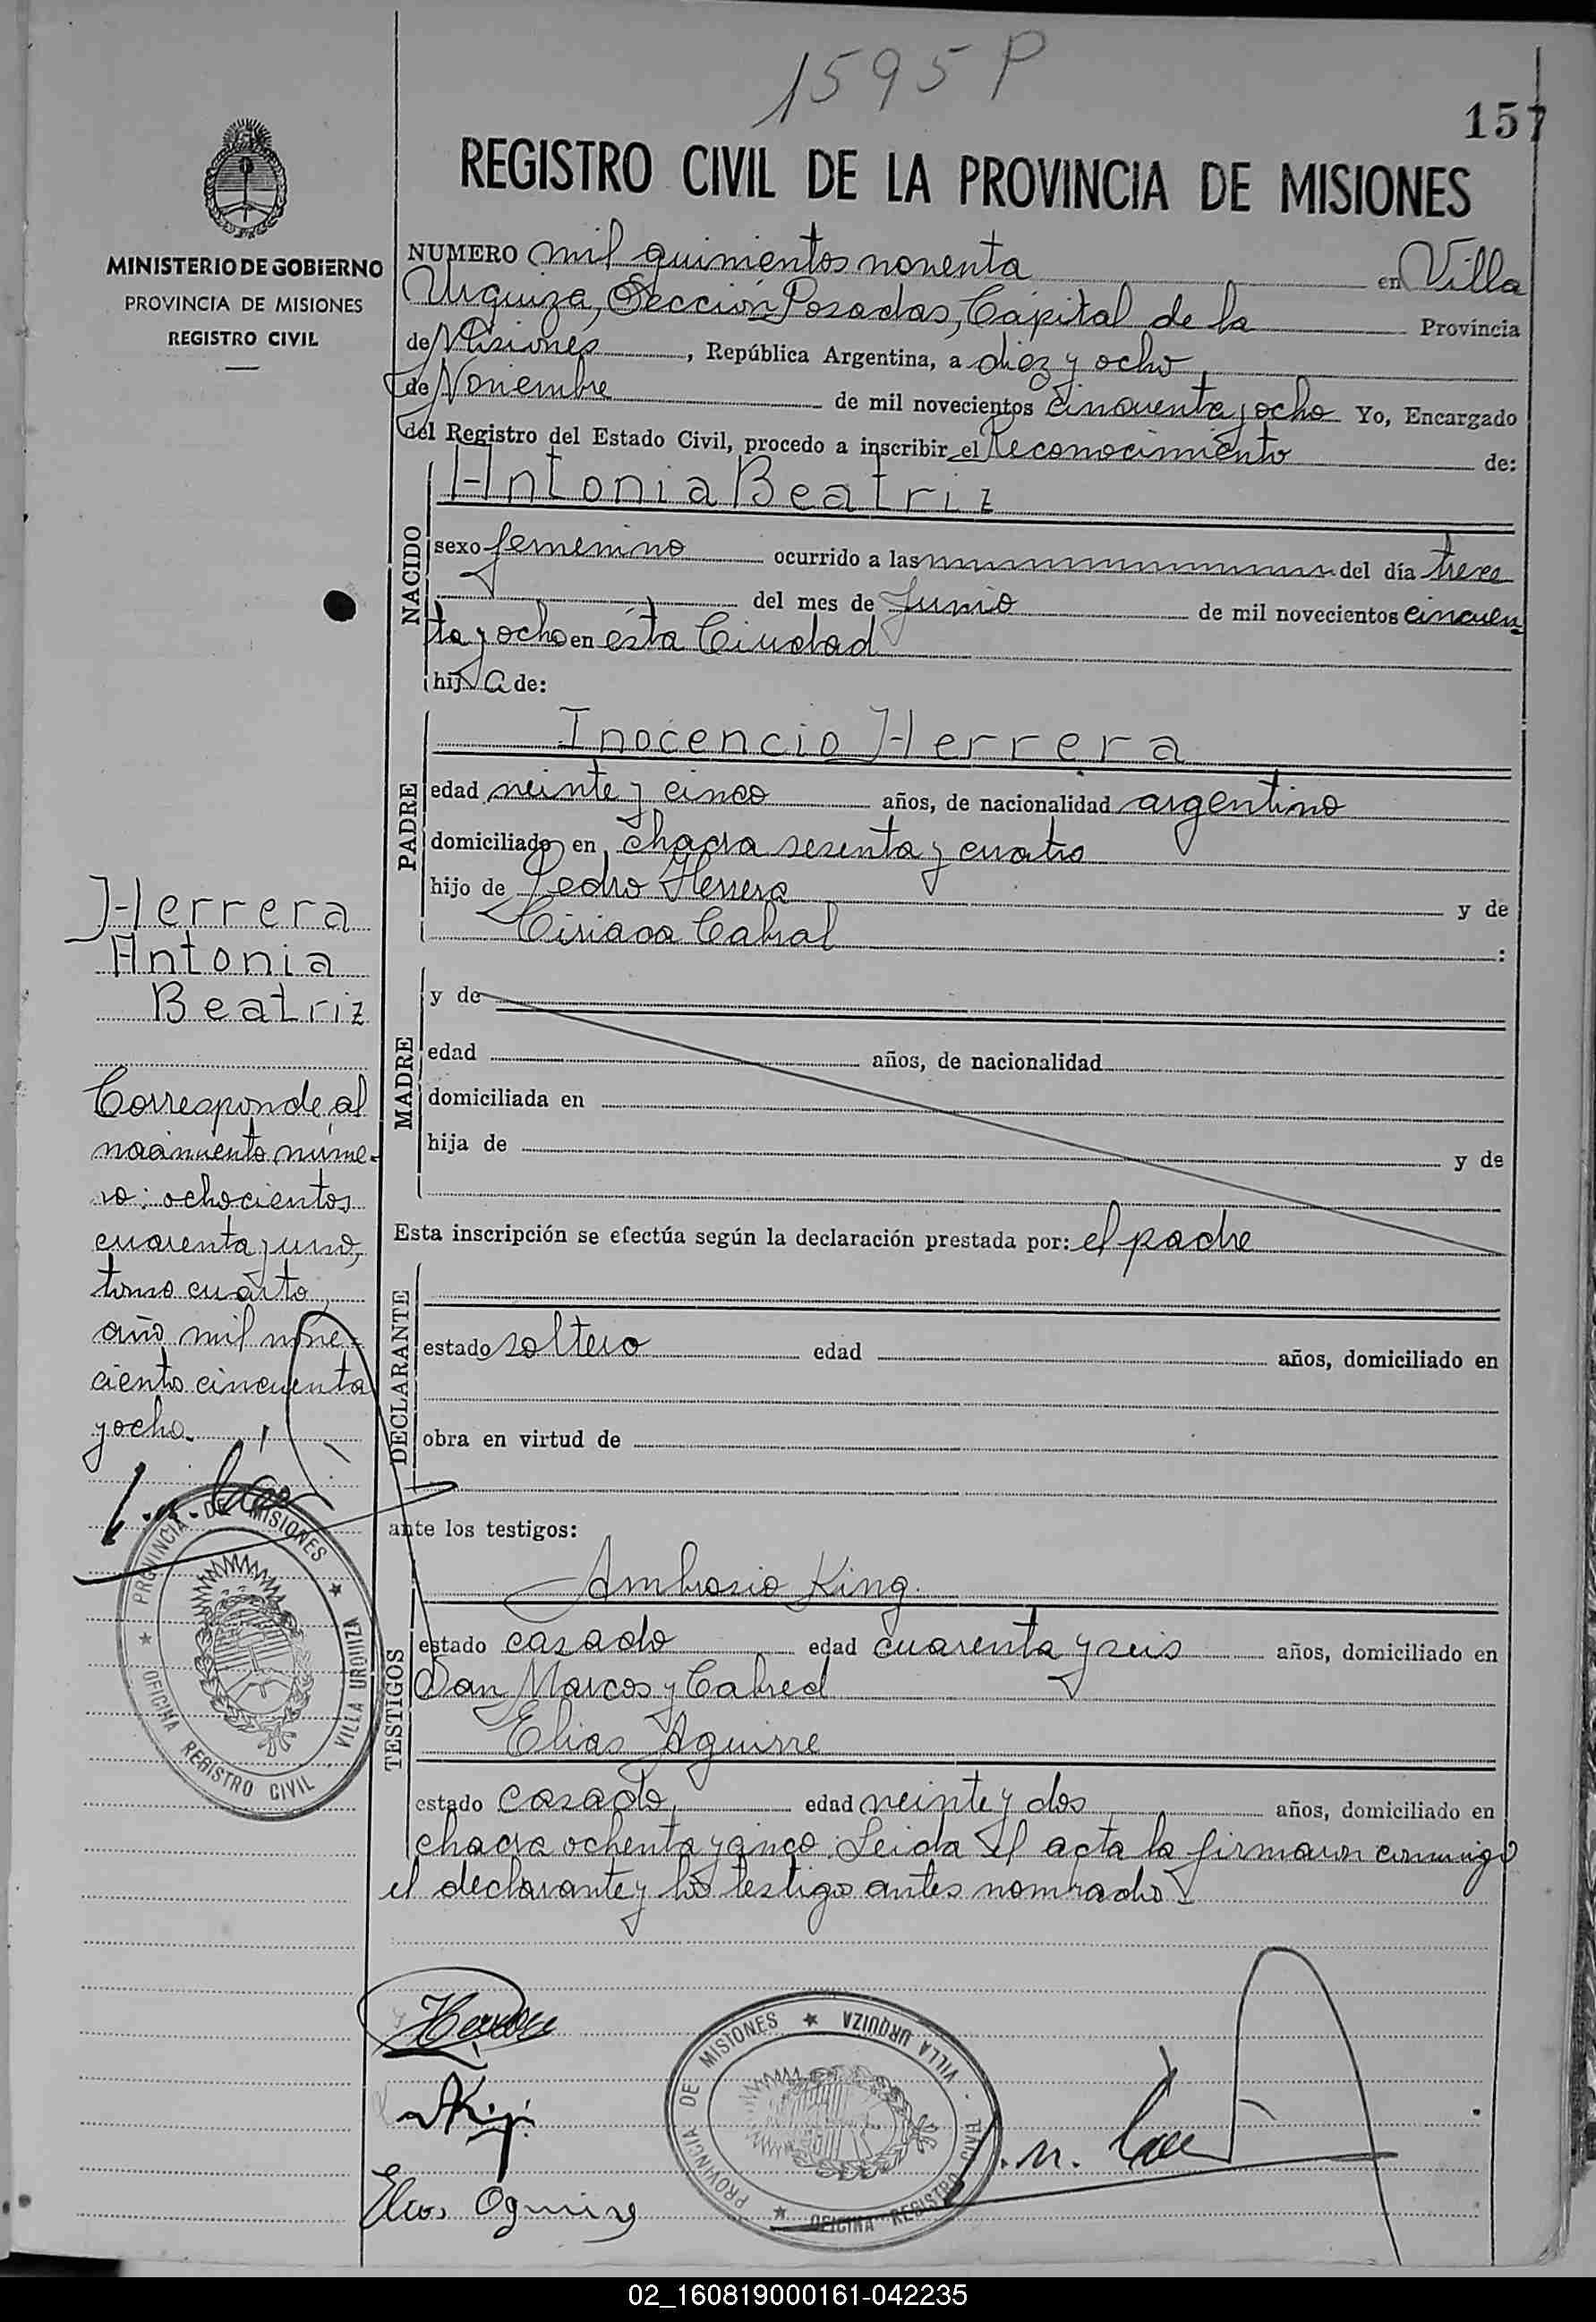 1595 P
157
REGISTRO CIVIL DE LA PROVINCIA DE MISIONES
MINISTERIO DE GOBIERNO
PROVINCIA DE MISIONES
REGISTRO CIVIL
NUMERO mil quinientos noventa en Villa
Urquiza, Sección Posadas, Capital de la Provincia
de Misiones, República Argentina, a diez y ocho
de Noviembre de mil novecientos cincuenta y ocho Yo, Encargado
del Registro del Estado Civil, procedo a inscribir el Reconocimiento de:
NACIDO
Antonia Beatriz
sexo femenino ocurrido a las del día trece
del mes de Junio de mil novecientos cincuen
ta y ocho en ésta Ciudad
hija de:
PADRE
Inocencio Herrera
edad veinte y cinco años, de nacionalidad argentino
domiciliado en chacra sesenta y cuatro
hijo de Pedro Herrera y de
Ciriaca Cabral :
MADRE
y de
edad años, de nacionalidad
domiciliada en
hija de y de
Esta inscripción se efectúa según la declaración prestada por: el padre
DECLARANTE
estado soltero edad años, domiciliado en
obra en virtud de
ante los testigos:
TESTIGOS
Ambrosio King.
estado casado edad cuarenta y seis años, domiciliado en
San Marcos y Cabred
Elias Aguirre
estado casado, edad veinte y dos años, domiciliado en
chacra ochenta y cinco. Leida el acta la firmaron conmigo
el declarante y los testigo antes nombrado
Herrera
Antonia
Beatriz
Corresponde al
nacimiento núme-
ro: ochocientos
cuarenta y uno,
tomo cuarto
año mil nove-
ciento cincuenta
y ocho.
PROVINCIA DE MISIONES ★ VILLA URQUIZA
★ OFICINA REGISTRO CIVIL
Herrera
AKing
Elias Aguirre
PROVINCIA DE MISIONES ★ VILLA URQUIZA
★ OFICINA REGISTRO CIVIL
02_160819000161-042235